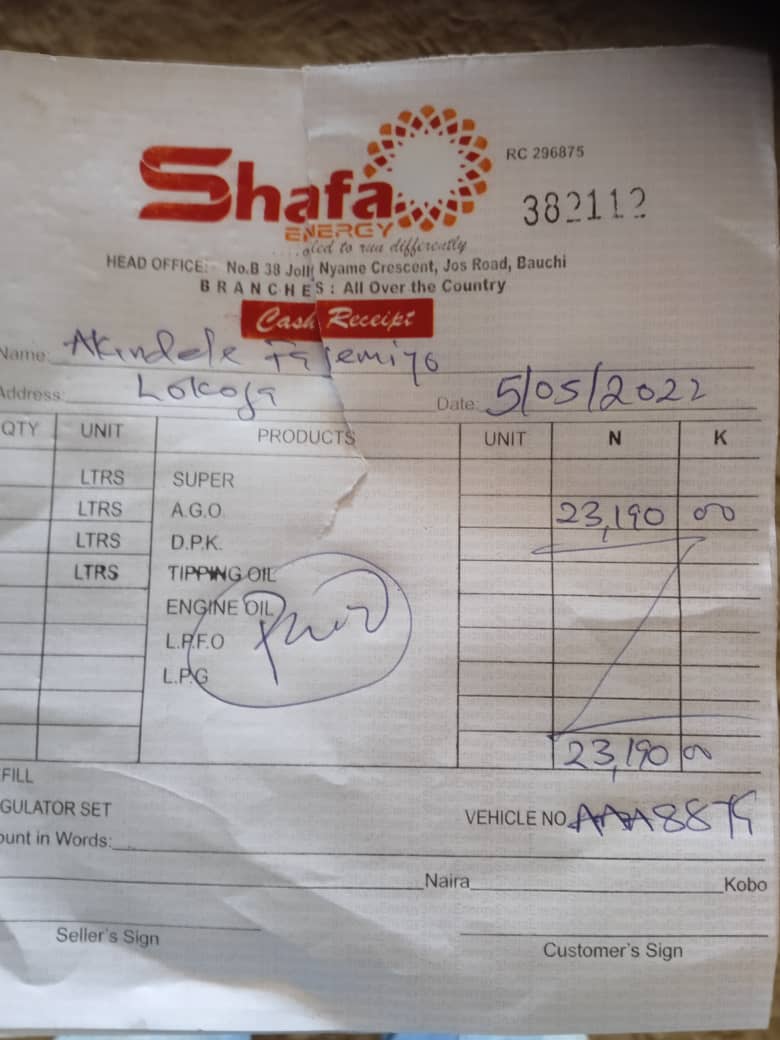 Shafa
ENERGY
RC 296875
382112
...oled to run differently
HEAD OFFICE:- No.B 38 Jolly Nyame Crescent, Jos Road, Bauchi
BRANCHES : All Over the Country
Cash Receipt
Name: Akindele
Address: Lokoja Date: 5/05/2022
QTY UNIT PRODUCTS UNIT N K
LTRS SUPER
LTRS A.G.O. 23,190 00
LTRS D.P.K.
LTRS TIPPING OIL
ENGINE OIL
L.P.F.O
L.P.G
23,190 00
FILL
GULATOR SET VEHICLE NO.
ount in Words:
Naira Kobo
Seller's Sign Customer's Sign